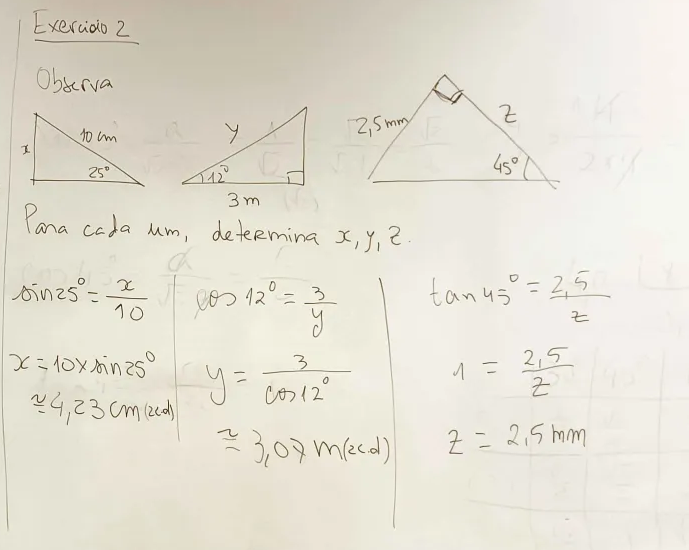 Exercício 2
Observa
x 10 cm 25°
y 12° 3 m
2,5 mm z 45°
Para cada um, determina x, y, z.
sin 25° = x/10
x = 10 × sin 25°
≈ 4,23 cm (2c.d)
cos 12° = 3/y
y = 3/cos 12°
≈ 3,07 m (2c.d)
tan 45° = 2,5/z
1 = 2,5/z
z = 2,5 mm